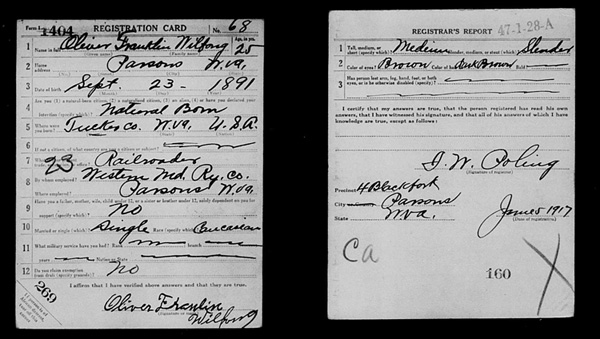 Form 1
1404
REGISTRATION CARD
No. 68
1 Name in full Oliver Franklin Wilfong
Age, in yrs. 25
(Family name)
2 Home address Parsons W.Va.
3 Date of birth Sept. 23 - 1891
(Month) (Day) (Year)
4 Are you (1) a natural-born citizen, (2) a naturalized citizen, (3) an alien, (4) or have you declared your intention (specify which)?
Natural Born
5 Where were you born? Tucker co. W.Va. U.S.A.
6 If not a citizen, of what country are you a citizen or subject?
7 What is your present trade, occupation, or office? 23 Railroader
8 By whom employed? Western Md. Ry. Co.
Where employed? Parsons W.Va.
9 Have you a father, mother, wife, child under 12, or a sister or brother under 12, solely dependent on you for support (specify which)?
No
10 Married or single (which)? Single Race (specify which)? Caucasian
11 What military service have you had? Rank branch
years Nation or State
12 Do you claim exemption from draft (specify grounds)? No
I affirm that I have verified above answers and that they are true.
269
Oliver Franlin
Wilfong
(Signature or mark)
REGISTRAR'S REPORT 47-1-28-A
1 Tall, medium, or short (specify which)? Medium Slender, medium, or stout (which)? Slender
2 Color of eyes? Brown Color of hair? Dark Brown Bald?
3 Has person lost arm, leg, hand, foot, or both eyes, or is he otherwise disabled (specify)?
I certify that my answers are true, that the person registered has read his own answers, that I have witnessed his signature, and that all of his answers of which I have knowledge are true, except as follows:
I. W. Poling
(Signature of registrar)
Precinct 4 Blackfork
City Parsons
State W.Va.
June 5 1917
(Date of registration)
Ca
160